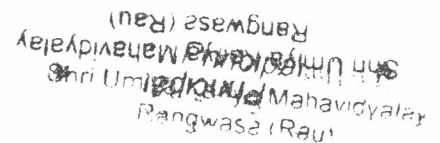 Rangwasa (Rau)
Shri Umiya Kanya Mahavidyalay
Principal
Shri Umiya Kanya Mahavidyalay
Rangwasa (Rau)